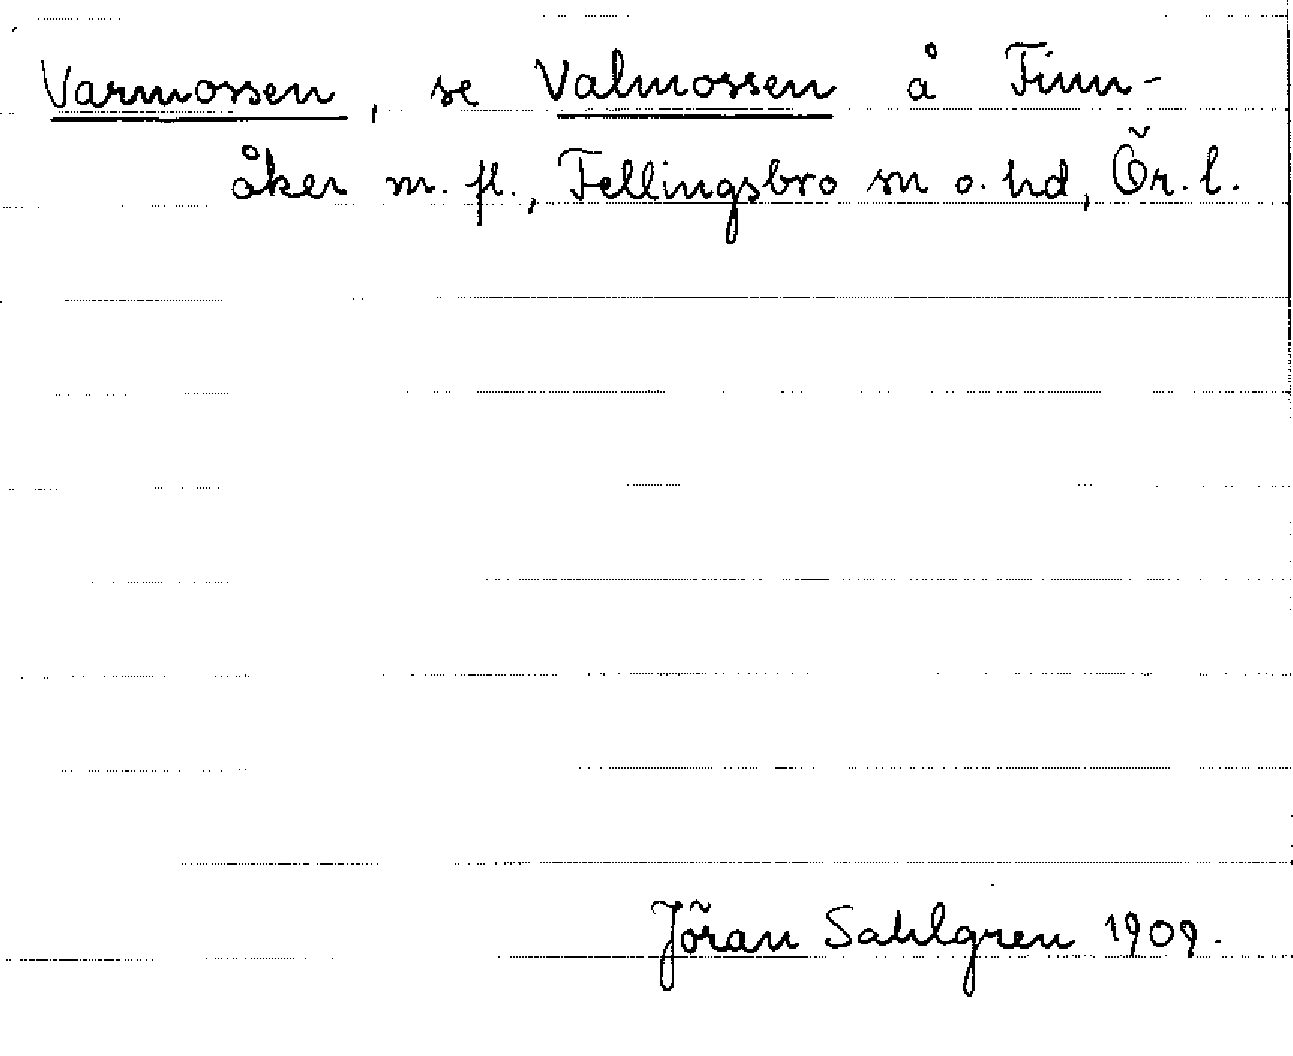 Varmossen, se Valmossen å Finn-
åker m. fl., Fellingsbro sn o. hd, Ör. l.
Jöran Sahlgren 1909.